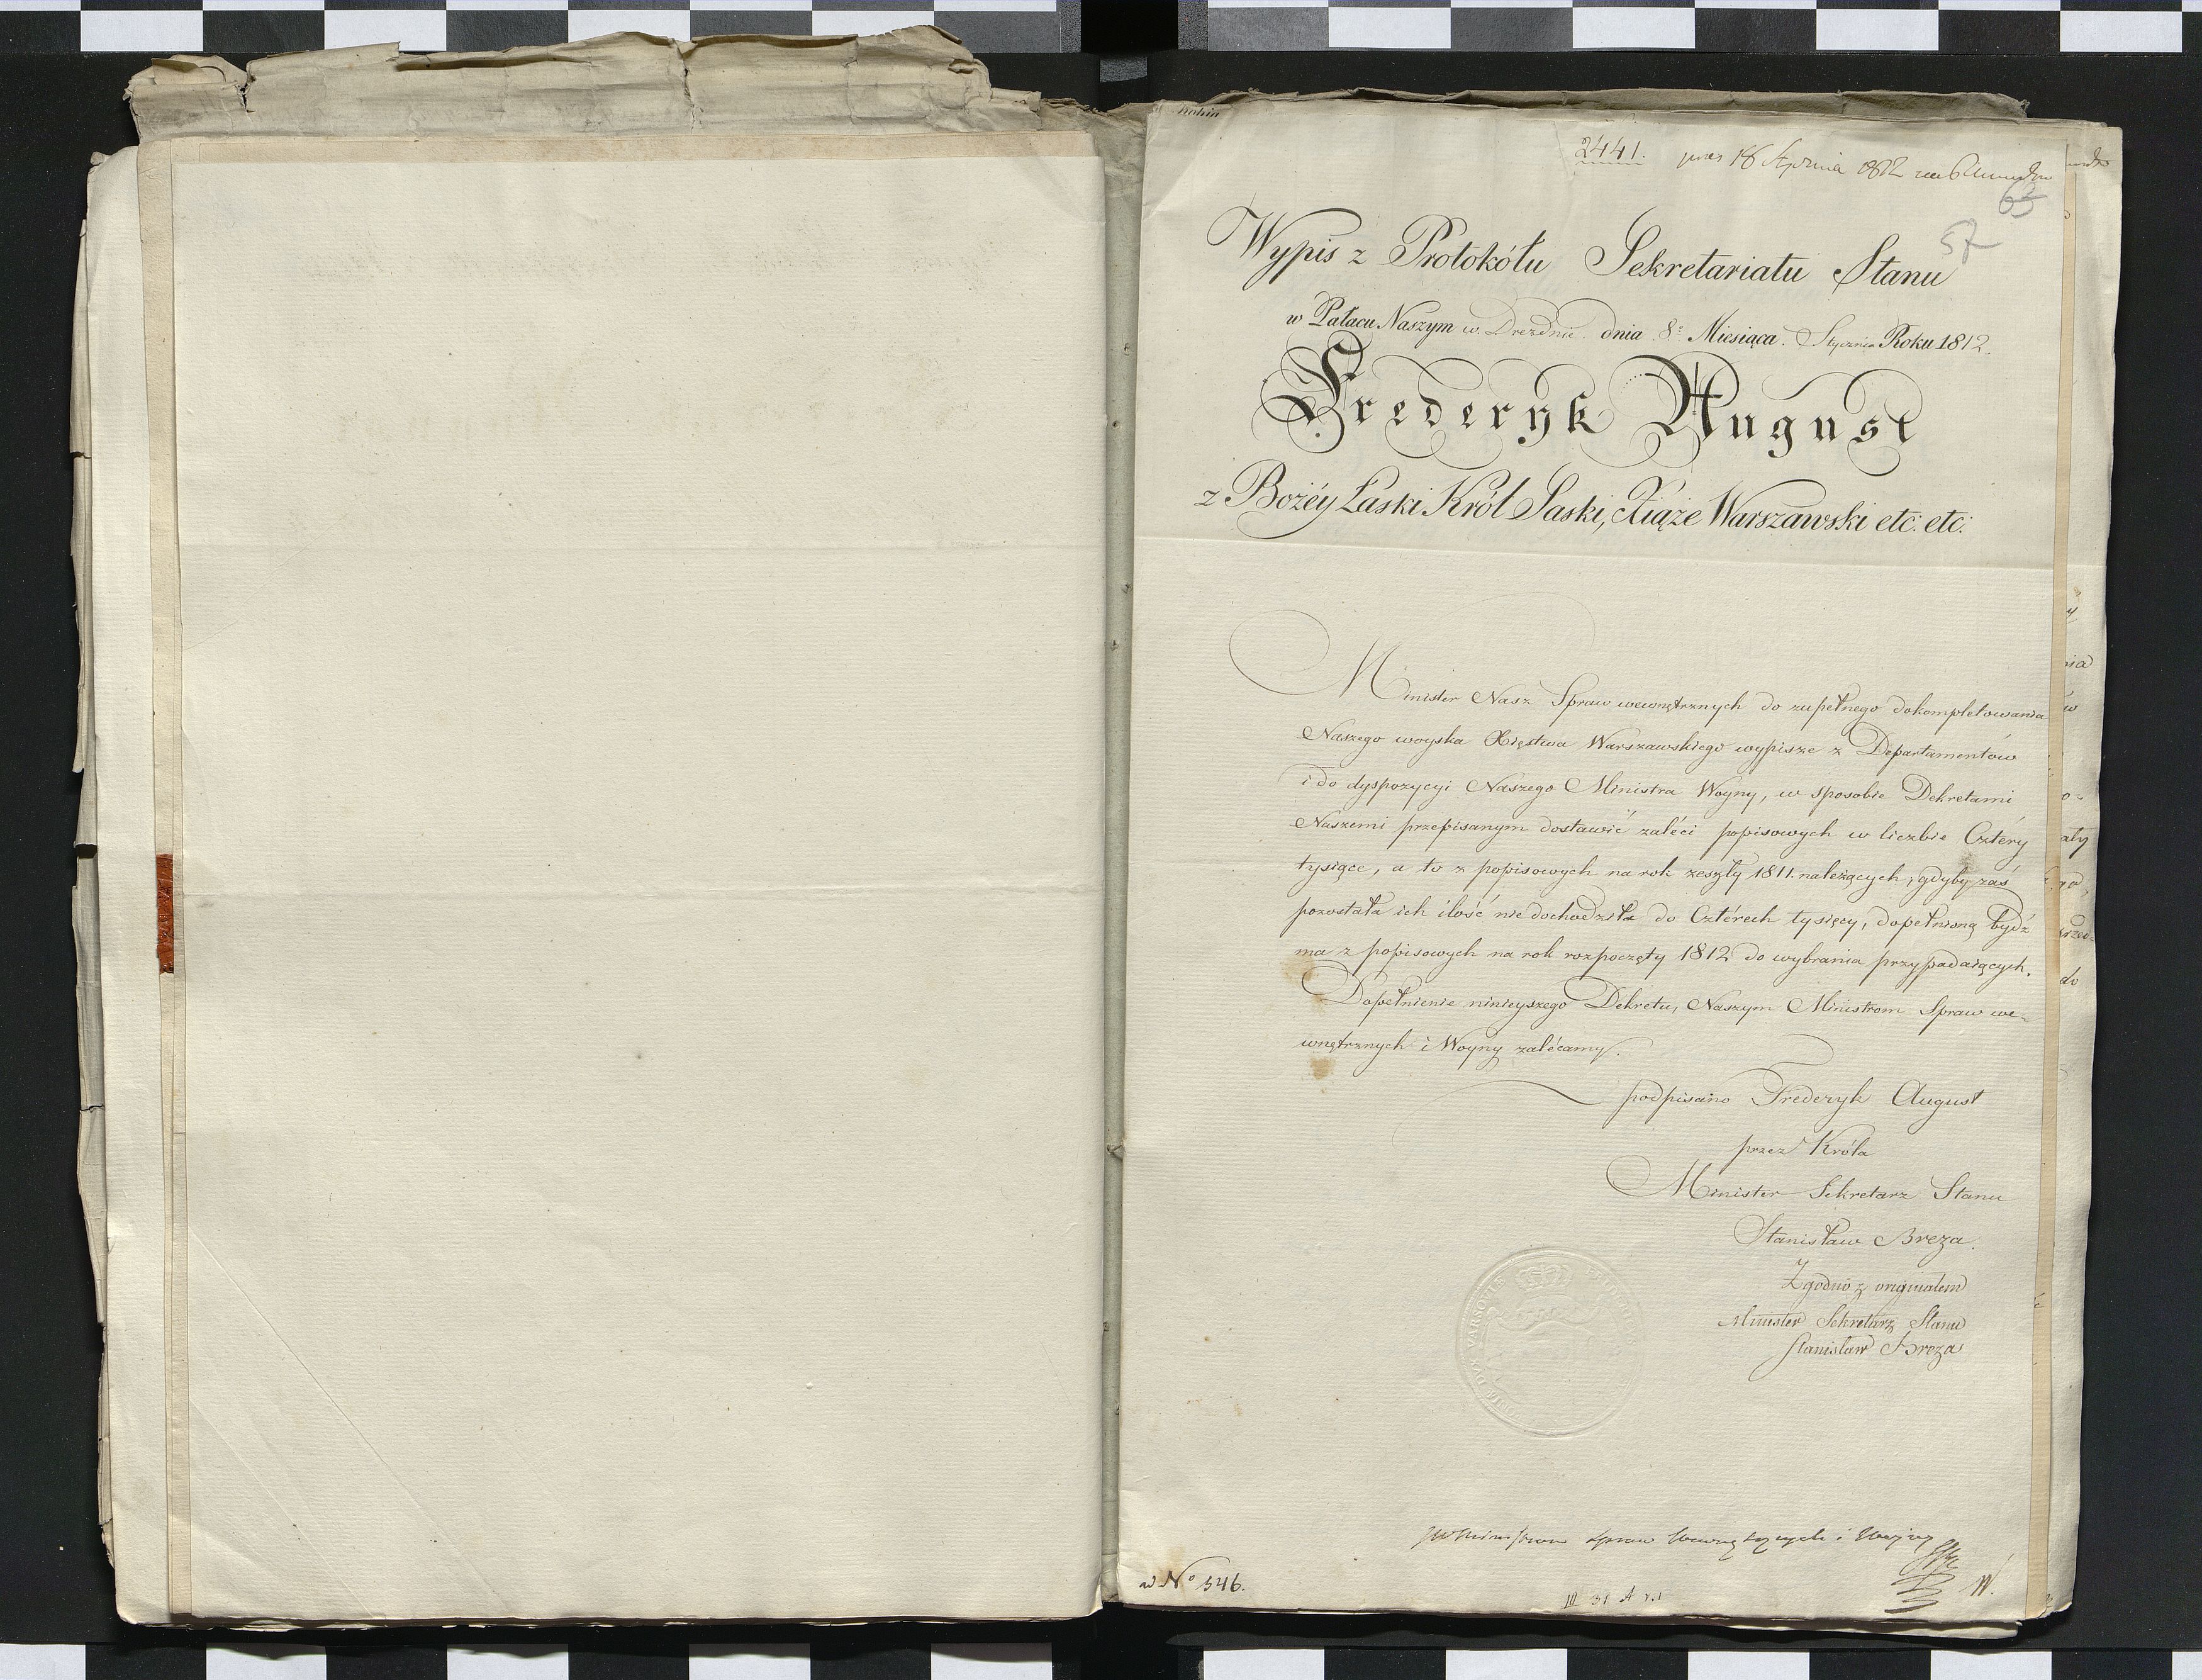 2441. 18 Stycznia 1812
65
57
Wypis z Protokółu Sekretariatu Stanu
w Pałacu Naszym w Dreznie dnia 8º Miesiąca Stycznia Roku 1812.
Frederyk August
z Bożéy Łaski Król Saski, Xiąże Warszawski etc: etc:
Minister Nasz Spraw wewnętrznych do zupełnego dokompletowania
Naszego woyska Xięstwa Warszawskiego wypisze z Departamentów
i do dyspozycyi Naszego Ministra Woyny, w sposobie Dekretami
Naszemi przepisanym dostawić zaléci popisowych w liczbie Cztéry
tysiące, a to z popisowych na rok zeszły 1811. należących; gdyby zaś
pozostała ich ilość nie dochodziła do Cztérech tysięcy, dopełnioną bydź
ma z popisowych na rok rozpoczęty 1812 do wybrania przypadaiących.
Dopełnienie ninieyszego Dekretu, Naszym Ministrom Spraw we-
wnętrznych i Woyny zalécamy.
podpisano Frederyk August
przez Króla
Minister Sekretarz Stanu
Stanisław Breza.
Zgodno z originałem
Minister Sekretarz Stanu
Stanisław Breza
Ministrom Spraw Wewnętrznych i Woyny
ad Nº 546.
III 31 A